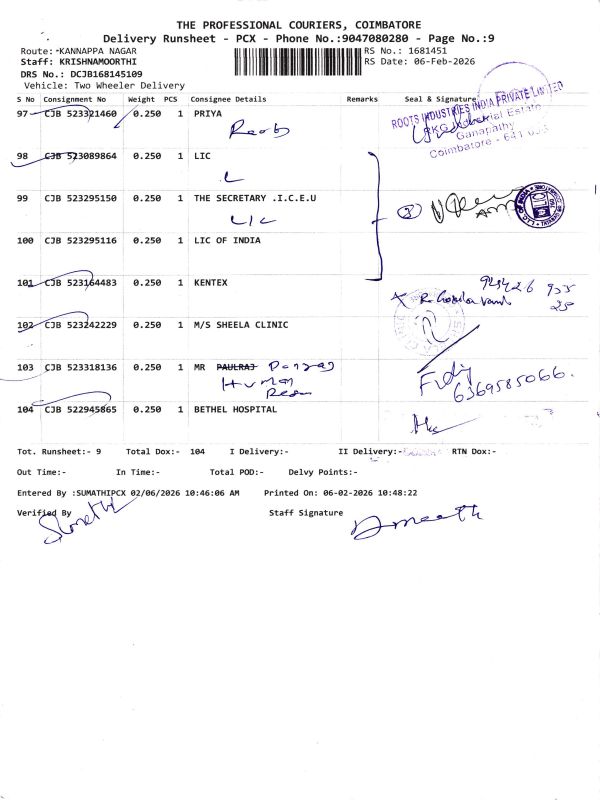 THE PROFESSIONAL COURIERS, COIMBATORE
Delivery Runsheet - PCX - Phone No.:9047080280 - Page No.:9
Route: KANNAPPA NAGAR RS No.: 1681451
Staff: KRISHNAMOORTHI RS Date: 06-Feb-2026
DRS No.: DCJB168145109
Vehicle: Two Wheeler Delivery
S No Consignment No Weight PCS Consignee Details Remarks Seal & Signature
97 CJB 523321460 0.250 1 PRIYA
ROOTS INDUSTRIES INDIA PRIVATE LIMITED
RKG Industrial Estate
Ganapathy
Coimbatore - 641 006
98 CJB 523089864 0.250 1 LIC
L
99 CJB 523295150 0.250 1 THE SECRETARY .I.C.E.U
LIC
3
100 CJB 523295116 0.250 1 LIC OF INDIA
101 CJB 523164483 0.250 1 KENTEX
102 CJB 523242229 0.250 1 M/S SHEELA CLINIC
103 CJB 523318136 0.250 1 MR PAULRAJ
Human
6369585066.
104 CJB 522945865 0.250 1 BETHEL HOSPITAL
Tot. Runsheet:- 9 Total Dox:- 104 I Delivery:- II Delivery:- RTN Dox:-
Out Time:- In Time:- Total POD:- Delvy Points:-
Entered By :SUMATHIPCX 02/06/2026 10:46:06 AM Printed On: 06-02-2026 10:48:22
Verified By Staff Signature
Sumathi